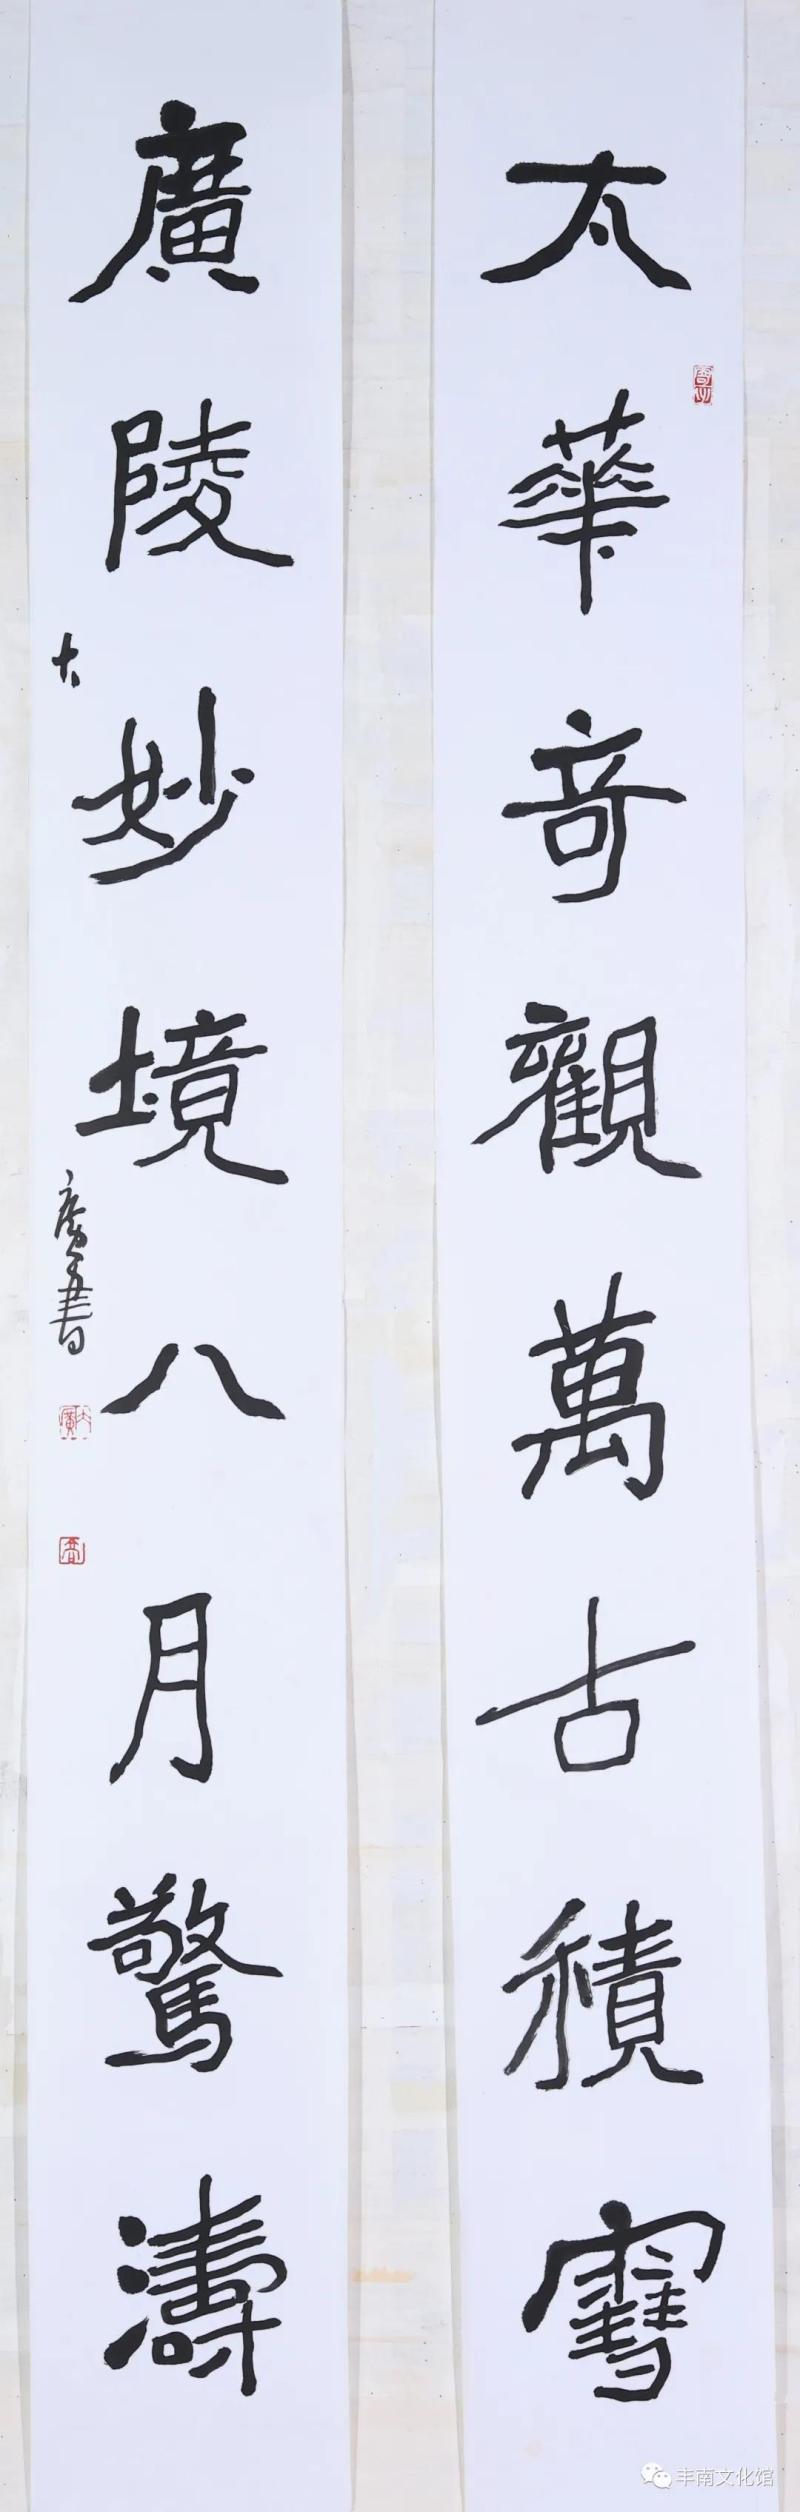 太華奇觀萬古積雪
廣陵妙境八月驚濤
大廣書
丰南文化馆